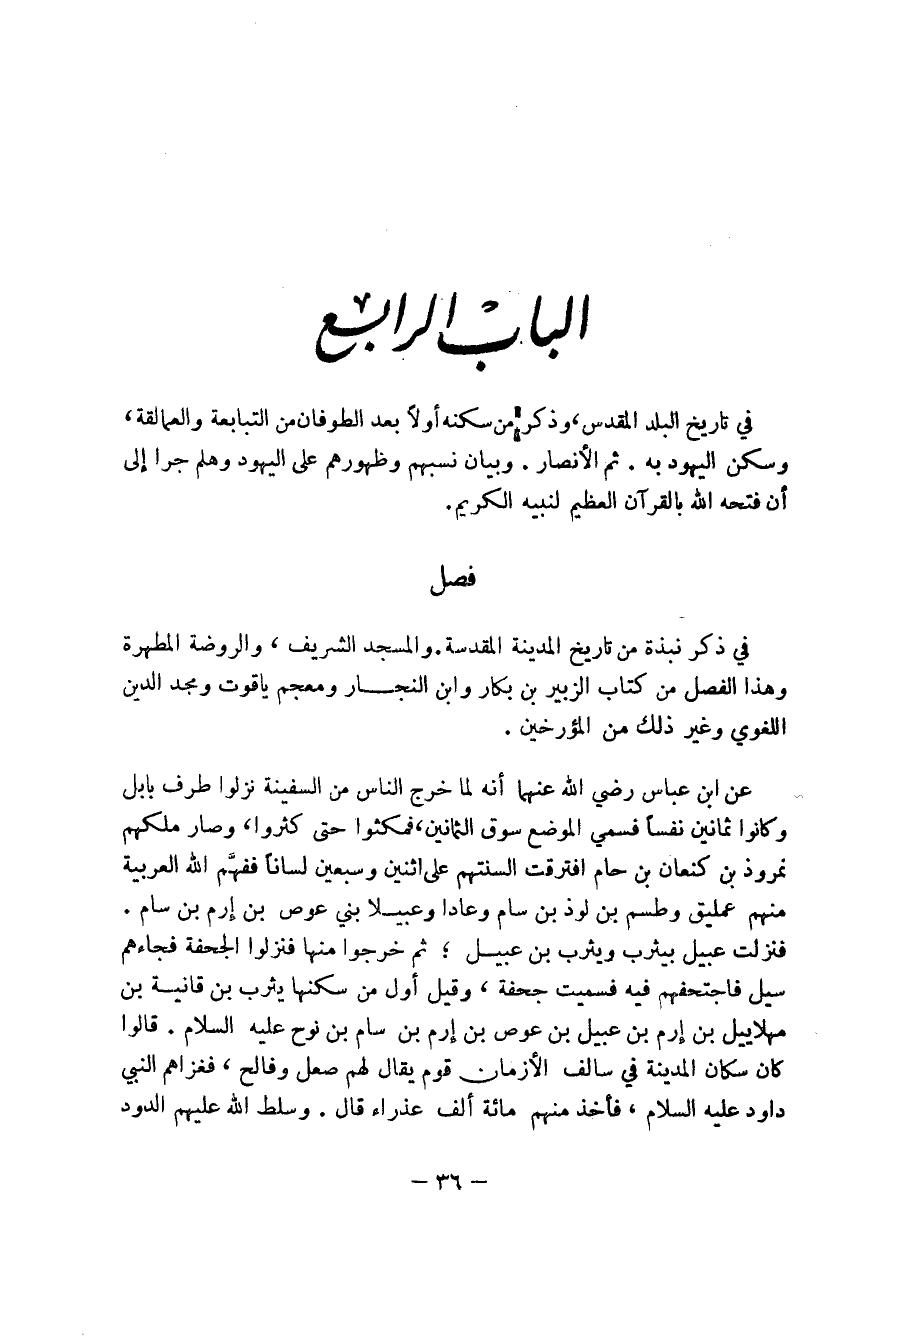 الباب الرابع
في تاريخ البلد المقدس، وذكر من سكنه أولاً بعد الطوفان من التبابعة والعمالقة،
وسكن اليهود به . ثم الأنصار . وبيان نسبهم وظهورهم على اليهود وهلم جرا إلى
أن فتحه الله بالقرآن العظيم لنبيه الكريم.
فصل
في ذكر نبذة من تاريخ المدينة المقدسة. والمسجد الشريف ، والروضة المطهرة
وهذا الفصل من كتاب الزبير بن بكار وابن النجار ومعجم ياقوت ومجد الدين
اللغوي وغير ذلك من المؤرخين .
عن ابن عباس رضي الله عنهما أنه لما خرج الناس من السفينة نزلوا طرف بابل
وكانوا ثمانين نفساً فسمي الموضع سوق الثمانين، فمكثوا حتى كثروا، وصار ملكهم
نمروذ بن كنعان بن حام افترقت السنتهم على اثنين وسبعين لساناً ففهَّم الله العربية
منهم عمليق وطسم بن لوذ بن سام وعادا وعبيلا بني عوص بن إرم بن سام .
فنزلت عبيل بيثرب ويثرب بن عبيل ؛ ثم خرجوا منها فنزلوا الجحفة فجاءهم
سيل فاجتحفهم فيه فسميت جحفة ، وقيل أول من سكنها يثرب بن قانية بن
مهلاييل بن إرم بن عبيل بن عوص بن إرم بن سام بن نوح عليه السلام . قالوا
كان سكان المدينة في سالف الأزمان قوم يقال لهم صعل وفالح ، فغزاهم النبي
داود عليه السلام ، فأخذ منهم مائة ألف عذراء قال . وسلط الله عليهم الدود
– ٣٦ –